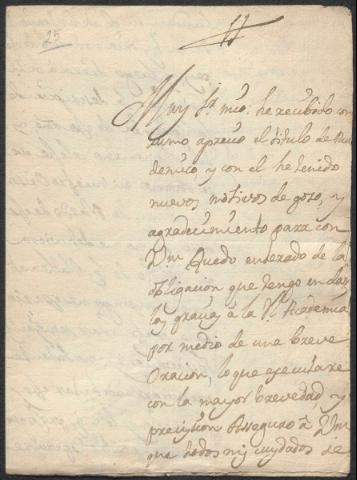 25
Muy Sr. mio. he recibido con
sumo aprecio el titulo de Aca
demico y con el he tenido
nuevos motivos de gozo, y
agradecimiento para con
Vm. Quedo enterado de la
obligacion que tengo en dar
las gracias à la Rl. Academia
por medio de una breve
Oracion, lo que ejecutare
con la mayor brevedad, y
precision Asseguro à Vm
que todos mis cuydados de